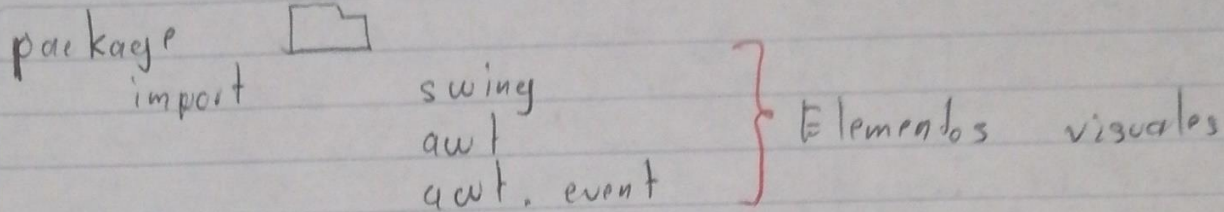 package
import swing
awt
awt.event
Elementos visuales